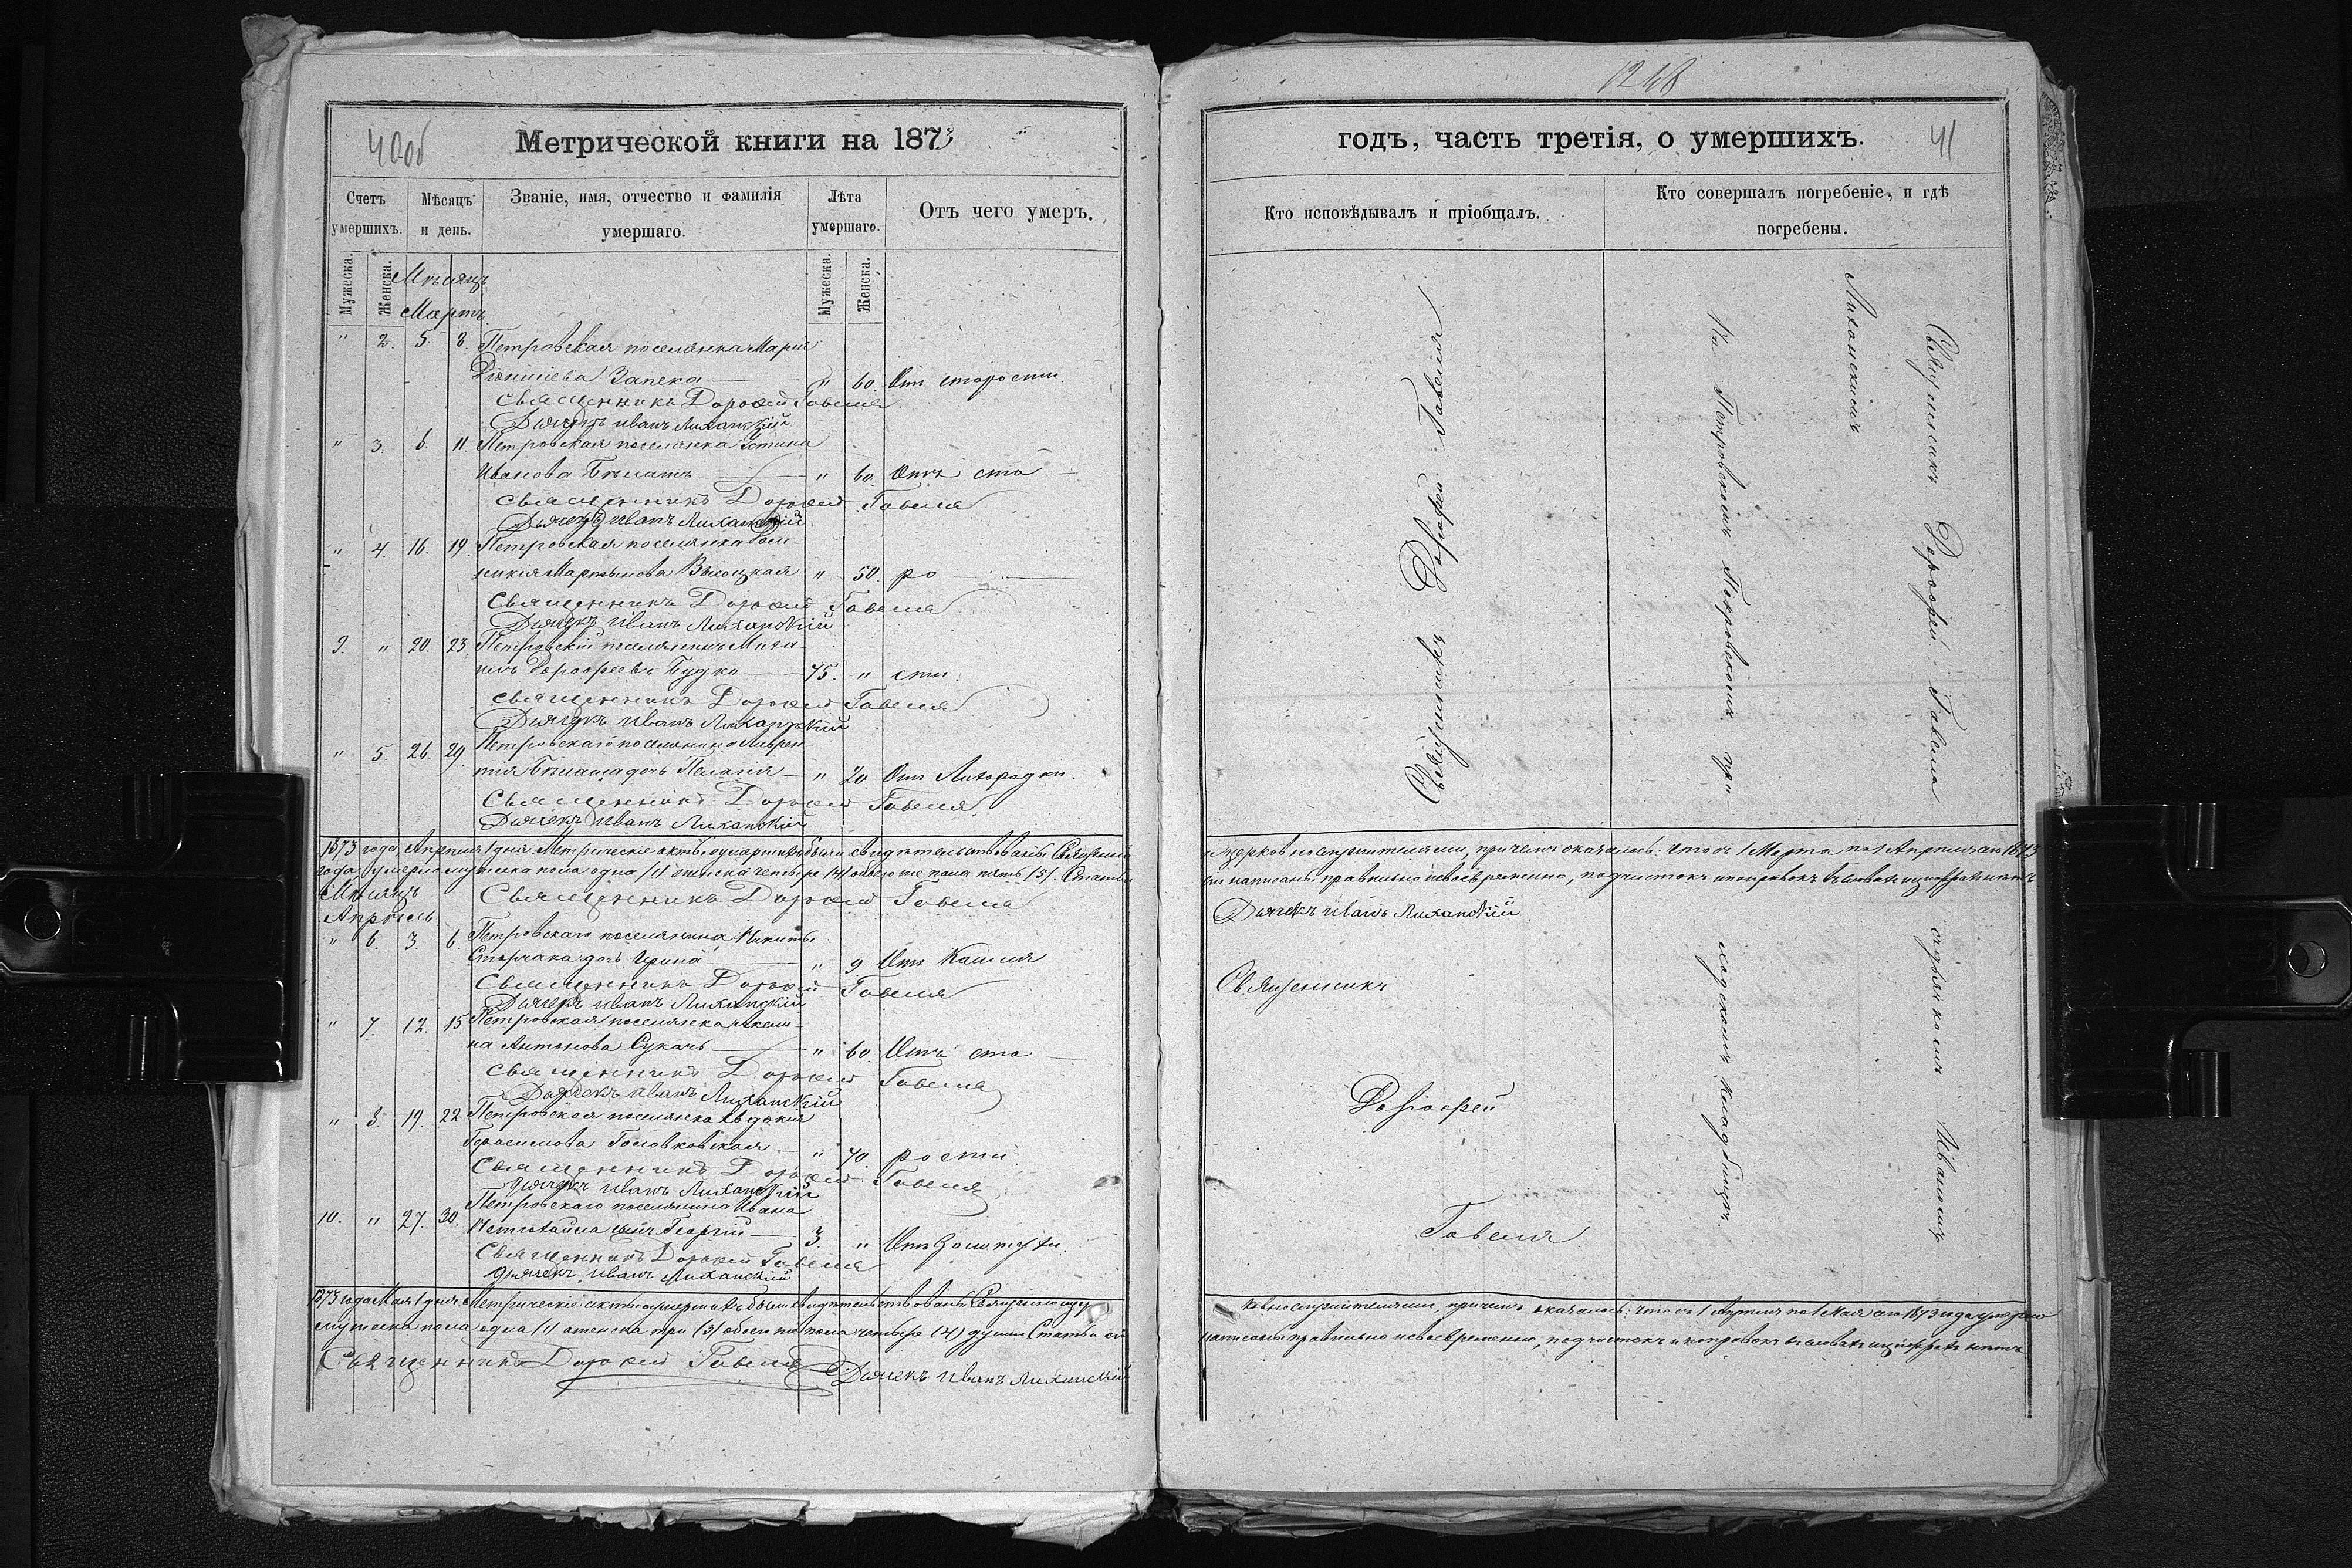 40об
Метрической книги на 1873
Счетъ умершихъ.
Мѣсяцъ и день.
Званіе, имя, отчество и фамилія умершаго.
Лѣта умершаго.
Отъ чего умеръ.
Мужеска.
Женска.
Мужеска.
Женска.
Мѣсяцъ
Мартъ
" 2. 5. 8. Петровская поселянка Марія
Діонисіева Запека " 60. Отъ старости.
Священникъ Дорофей Гавеля
Дьячекъ Иванъ Лиханскій
" 3. 6. 11. Петровская поселянка Устина
Иванова Бѣлашъ " 60. Отъ ста
Священникъ Дорофей Гавеля
Дьячекъ Иванъ Лиханскій
" 4. 16. 19. Петровская поселянка
Мартынова Высоцкая " 50. ро
Священникъ Дорофей Гавеля
Дьячекъ Иванъ Лиханскій
9. " 20. 23. Петровскій поселянинъ Миха
илъ Дорофеевъ Будко 75. " сти.
Священникъ Дорофей Гавеля
Дьячекъ Иванъ Лиханскій
" 5. 26. 29. Петровскаго поселянина Лаврен
тія Бѣлаша дочь Пелагія " 20. Отъ Лихорадки.
Священникъ Дорофей Гавеля
Дьячекъ Иванъ Лиханскій
1873 года, Апрѣля 1 дня Метрическіе акты о умершихъ были свидѣтельствованы Священно
года умерло мужеска пола одна /1/ женска четыре /4/ обоего же пола пять /5/ Статьи
Мѣсяцъ
Апрѣль.
Священникъ Дорофей Гавеля
" 6. 3. 6. Петровскаго поселянина Никиты
дочь Ирина " 9. Отъ Кашля
Священникъ Дорофей Гавеля
Дьячекъ Иванъ Лиханскій
" 7. 12. 15. Петровская поселянка Акели
на Антонова Сукачъ " 60. Отъ ста
Священникъ Дорофей Гавеля
Дьячекъ Иванъ Лиханскій
" 8. 19. 22. Петровская поселянка Евдокія
Герасимова Головковская " 70. рости.
Священникъ Дорофей Гавеля
Дьячекъ Иванъ Лиханскій
10. " 27. 30. Петровскаго поселянина Ивана
сынъ Георгій 3. " Отъ Золотухи.
Священникъ Дорофей Гавеля
Дьячекъ Иванъ Лиханскій
1873 года Мая 1 дня Метрическіе акты о умершихъ были свидѣтельствованы Священно и цер
мужеска пола одна /1/ женска три /3/ обоего же пола четыре /4/ души Статьи сіи
Священникъ Дорофей Гавеля Дьячекъ Иванъ Лиханскій
1248
годъ, часть третія, о умершихъ.
41
Кто исповѣдывалъ и пріобщалъ.
Кто совершалъ погребеніе, и гдѣ погребены.
Священникъ Дорофей Гавеля
На Петровскомъ Покровскомъ при-
Священникъ Дорофей Гавеля
Лиханскимъ
и церковнослужителями, при чемъ оказалось: что съ 1 Марта по 1 Апрѣля сего 1873
сіи написаны правильно и своевременно, подчистокъ и поправокъ въ словахъ и цифрахъ нѣтъ
Дьячекъ Иванъ Лиханскій
Священникъ
Дорофей
Гавеля
ходскомъ кладбищѣ.
съ дьячкомъ Иваномъ
ковнослужителями, при чемъ оказалось: что съ 1 Апрѣля по 1 Мая сего 1873 года умерло
написаны правильно и своевременно, подчистокъ и поправокъ въ словахъ и цифрахъ нѣтъ